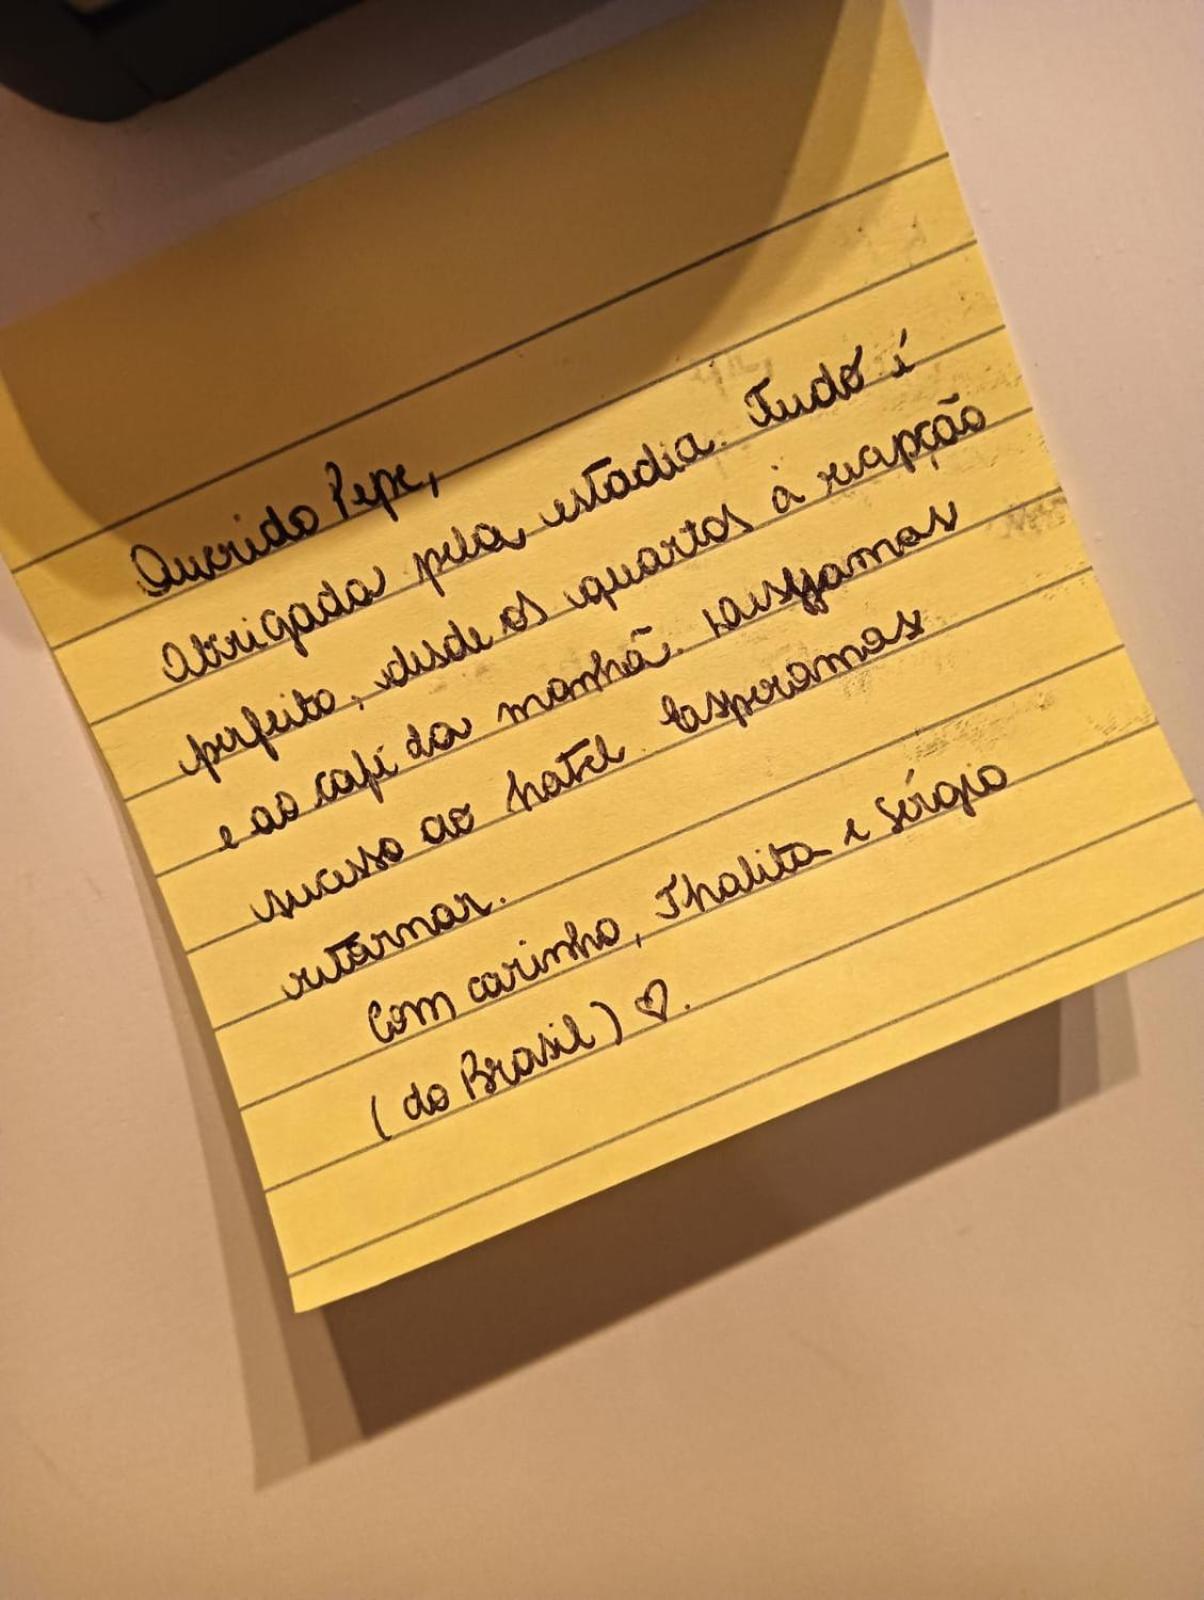 Querido Pepe,
Obrigada pela estadia. Tudo é
perfeito, desde os quartos à recepção
e ao café da manhã. Desejamos
sucesso ao hotel. Esperamos
retornar.
Com carinho, Thalita e Sérgio
(do Brasil) ♡.